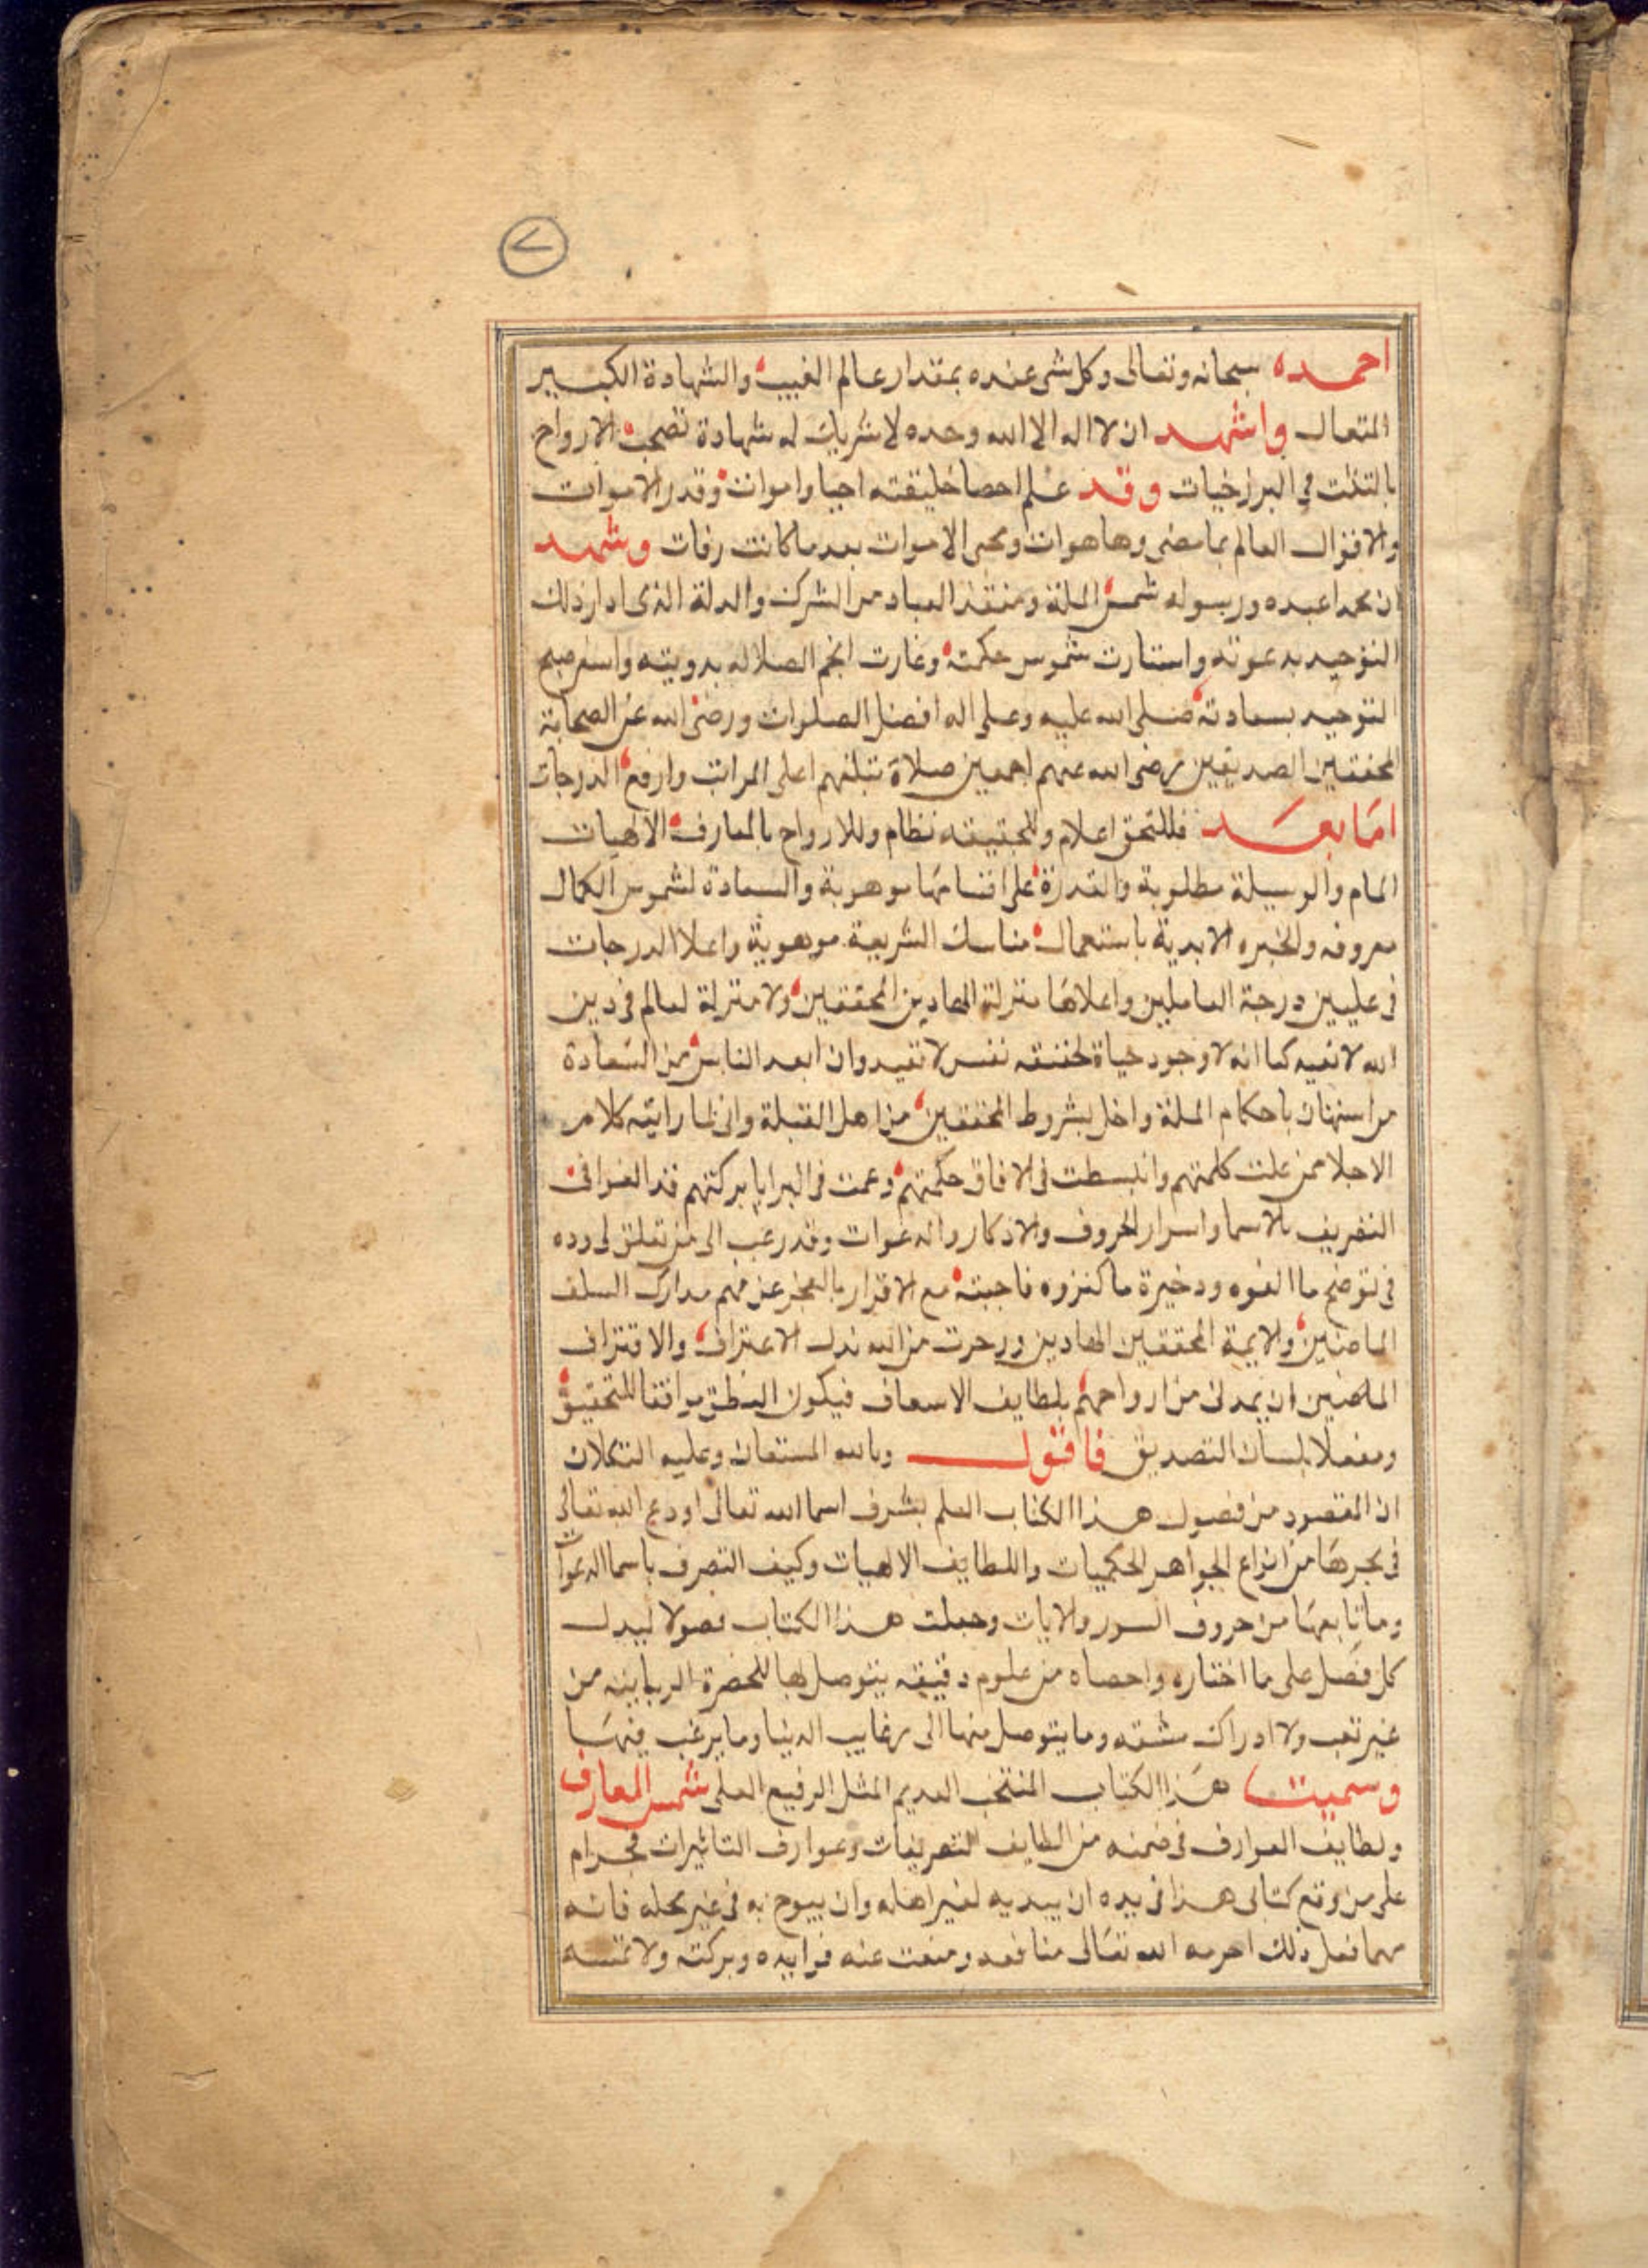 ٧
احمده سبحانه وتعالى وكل شى عنده بمقدار عالم الغيب والشهادة الكبير
المتعال واشهد ان لا اله الا الله وحده لا شريك له شهادة تصحب الارواح
في البرزخيات وقد علم احصا خليقته احيا وامواتا وقدر الاموات
والاقوال العالم بما مضى وها هوات ومحى الاموات بعد ما كانت رفات وشهد
ان محمدا عبده ورسوله شمس الملة ومنقذ العباد من الشرك والدلة الذى ادار ذلك
التوحيد بدعوته واستنارت شموس حكمته وغارت انجم الضلاله بدويته واسفر صبح
التوحيد بسعادته صلى الله عليه وعلى اله افضل الصلوات ورضى الله عن الصحابة
المحققين الصديقين رضى الله عنهم اجمعين صلاة تبلغهم اعلى المراتب وارفع الدرجات
اما بعد فللتحق اعلام وللحقيقه نظام وللارواح بالمعارف الالهيات
المام والوسيلة مطلوبة والقدرة على اقتسامها موهوبة والسعادة لشموس الكمال
معروفه والخيره الابدية باستعمال مناسك الشريعة موهوبة واعلا الدرجات
فى عليين درجة العاملين واعلاها منزلة الهادين المحققين ولا منزلة لعالم فى دين
الله لا تفيه كما انه لا وجود حياة نفس لا تفيد وان ابعد الناس من السعادة
من استهان باحكام الملة واخل بشروط المحققين من اهل القبلة وانى لما رايته كلام
الاجلا ممن علت كلمتهم وانبسطت فى الافاق حكمتهم وعمت فى البرايا بركتهم قد الفوا فى
التصريف بالاسما واسرار الحروف والاذكار والدعوات وقد رغب الى من تعلق لى وده
فى توضح ما الفوه وذخيرة ما كنزوه فاجبته مع الاقرار بالعجز عن فهم مدارك السلف
الماضين والايمة المحققين الهادين ورجوت من الله بذل الاعتراف والاقتراف
الماضين ان يمدنى من ارواحهم بلطايف الاسعاف فيكون النطق موافقا للتحقيق
ومفعلا بلسان التصديق فاقول وبالله المستعان وعليه التكلان
ان المقصود من فصول هذا الكتاب العلم بشرف اسما الله تعالى اودع الله تعالى
فى بحرها من انواع الجواهر الحكميات واللطايف الالهيات وكيف التصرف باسما الدعوات
وما تابعها من حروف السور والايات وجعلت هذا الكتاب فصولا ليدل
كل فصل على ما اختاره واحصاه من علوم دقيقه يتوصل بها للحضرة الربانيه من
غير تعب ولا ادراك مشقه وما يتوصل منها الى رغايب الدنيا وما يرغب فيها
وسميت هذا الكتاب المنتخب العديم المثل الرفيع العلى شمس المعارف
ولطايف العوارف فى ضمنه من لطايف التصريفات وعوارف التاثيرات فحرام
على من وقع كتابى هذا فى يده ان يبديه لغير اهله وان يبوح به فى غير محله فانه
مهما فعل ذلك احرمه الله تعالى منافعه ومنعت عنه فوايده وبركته ولا تمسه